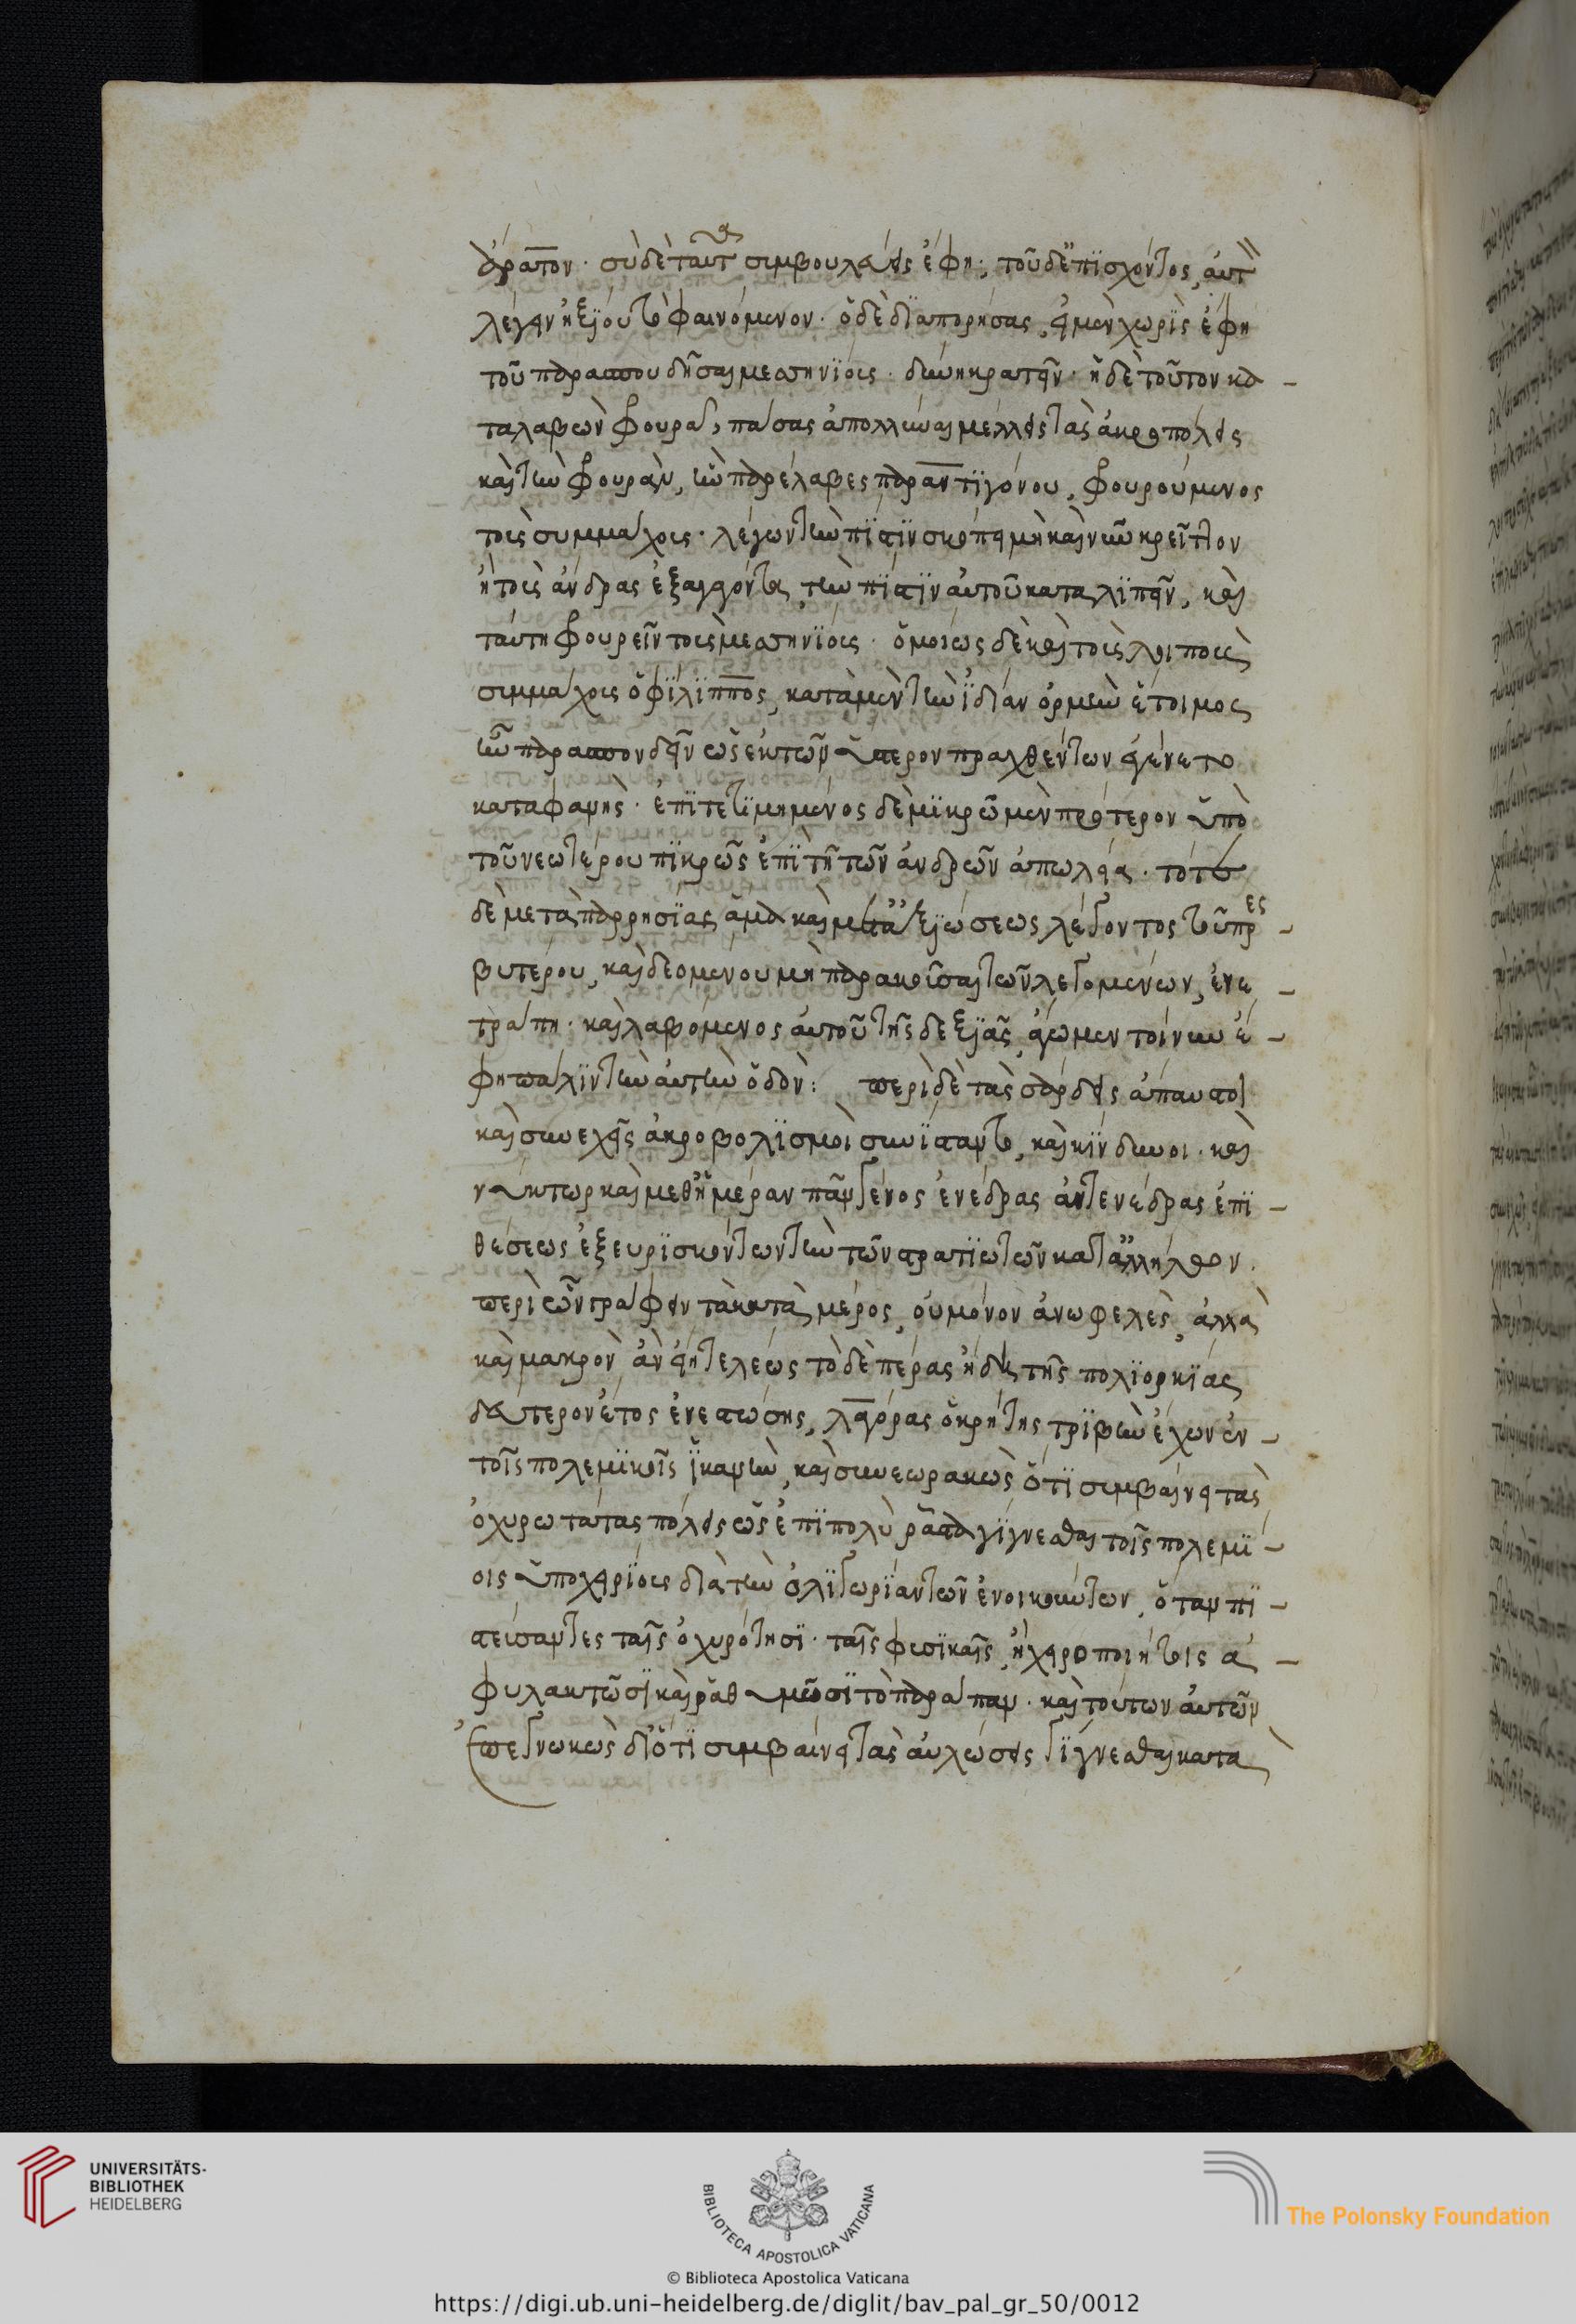 ἄρατον· σὺ δὲ ταῦτα συμβουλεύεις ἔφη; τοῦ δ' ἐπισχόντος, αὐτὸ
λέγειν ἠξίου τὸ φαινόμενον· ὁ δὲ διαπορήσας, εἰ μὲν χωρὶς ἔφη
τοῦ παρασπονδῆσαι μεσσηνίους· δύνη κρατεῖν· ἢ δὲ τοῦτον κα-
ταλαβὼν φρουρᾷ, πάσας ἀπολλύναι μέλλεις τὰς ἀκροπόλεις
καὶ τὴν φρουρὰν, ἣν παρέλαβες παρ' ἀντιγόνου, φρουρούμενος
τοὺς συμμάχους· λέγων τὴν πίστιν σκόπει μὴ καὶ νῦν κρεῖττον
ἢ τοὺς ἄνδρας ἐξαγαγόντα, τὴν πίστιν αὐτοῦ καταλιπεῖν, καὶ
ταύτη φρουρεῖν τοὺς μεσσηνίους· ὁμοίως δὲ καὶ τοὺς λοιποὺς
συμμάχους ὁ φίλιππος, κατὰ μὲν τὴν ἰδίαν ὁρμὴν ἕτοιμος
ἦν παρασπονδεῖν ὡς ἐκ τῶν ὕστερον πραχθέντων ἐγένετο
καταφανής· ἐπιτετιμημένος δὲ μικρῷ μὲν πρότερον ὑπὸ
τοῦ νεωτέρου πικρῶς ἐπὶ τῇ τῶν ἀνδρῶν ἀπωλείᾳ· τότε
δὲ μετὰ παρρησίας ἅμα καὶ μετ' ἀξιώσεως λέγοντος τοῦ πρεσ-
βυτέρου, καὶ δεομένου μὴ παρακοῦσαι τῶν λεγομένων, ἐνε-
τράπη· καὶ λαβόμενος αὐτοῦ τῆς δεξιᾶς, ἄγωμεν τοίνυν ἔ-
φη πάλιν τὴν αὐτὴν ὁδόν: περὶ δὲ τὰς σάρδεις ἄπαυστοι
καὶ συνεχεῖς ἀκροβολισμοὶ συνίσταντο, καὶ κίνδυνοι· καὶ
νύκτωρ καὶ μεθ' ἡμέραν πᾶν γένος ἐνέδρας ἀντενέδρας ἐπι-
θέσεως ἐξευρισκόντων τὴν τῶν στρατιωτῶν κατ' ἀλλήλων·
περὶ ὧν γράφειν τὰ κατὰ μέρος, οὐ μόνον ἀνωφελὲς, ἀλλὰ
καὶ μακρὸν ἂν εἴη τελέως τὸ δὲ πέρας ἤδη τῆς πολιορκίας
δεύτερον ἔτος ἐνεστώσης, λαγόρας ὁ κρήτης τριβὴν ἔχων ἐν-
τοῖς πολεμικοῖς ἱκανὴν, καὶ συνεωρακὼς ὅτι συμβαίνει τὰς
ὀχυρωτάτας πόλεις ὡς ἐπὶ πολὺ ῥᾷστα γίγνεσθαι τοῖς πολεμί-
οις ὑποχειρίους διὰ τὴν ὀλιγωρίαν τῶν ἐνοικούντων, ὅταν πι-
στεύσαντες ταῖς ὀχυρότησι· ταῖς φυσικαῖς, ἢ χειροποιήτοις ἀ-
φυλακτῶσι καὶ ῥαθυμῶσι τὸ παράπαν· καὶ τούτων αὐτῶν
ἐπεγνωκὼς διότι συμβαίνει τὰς ἁλώσεις γίγνεσθαι κατὰ
UNIVERSITÄTS-
BIBLIOTHEK
HEIDELBERG
BIBLIOTECA APOSTOLICA VATICANA
The Polonsky Foundation
© Biblioteca Apostolica Vaticana
https://digi.ub.uni-heidelberg.de/diglit/bav_pal_gr_50/0012